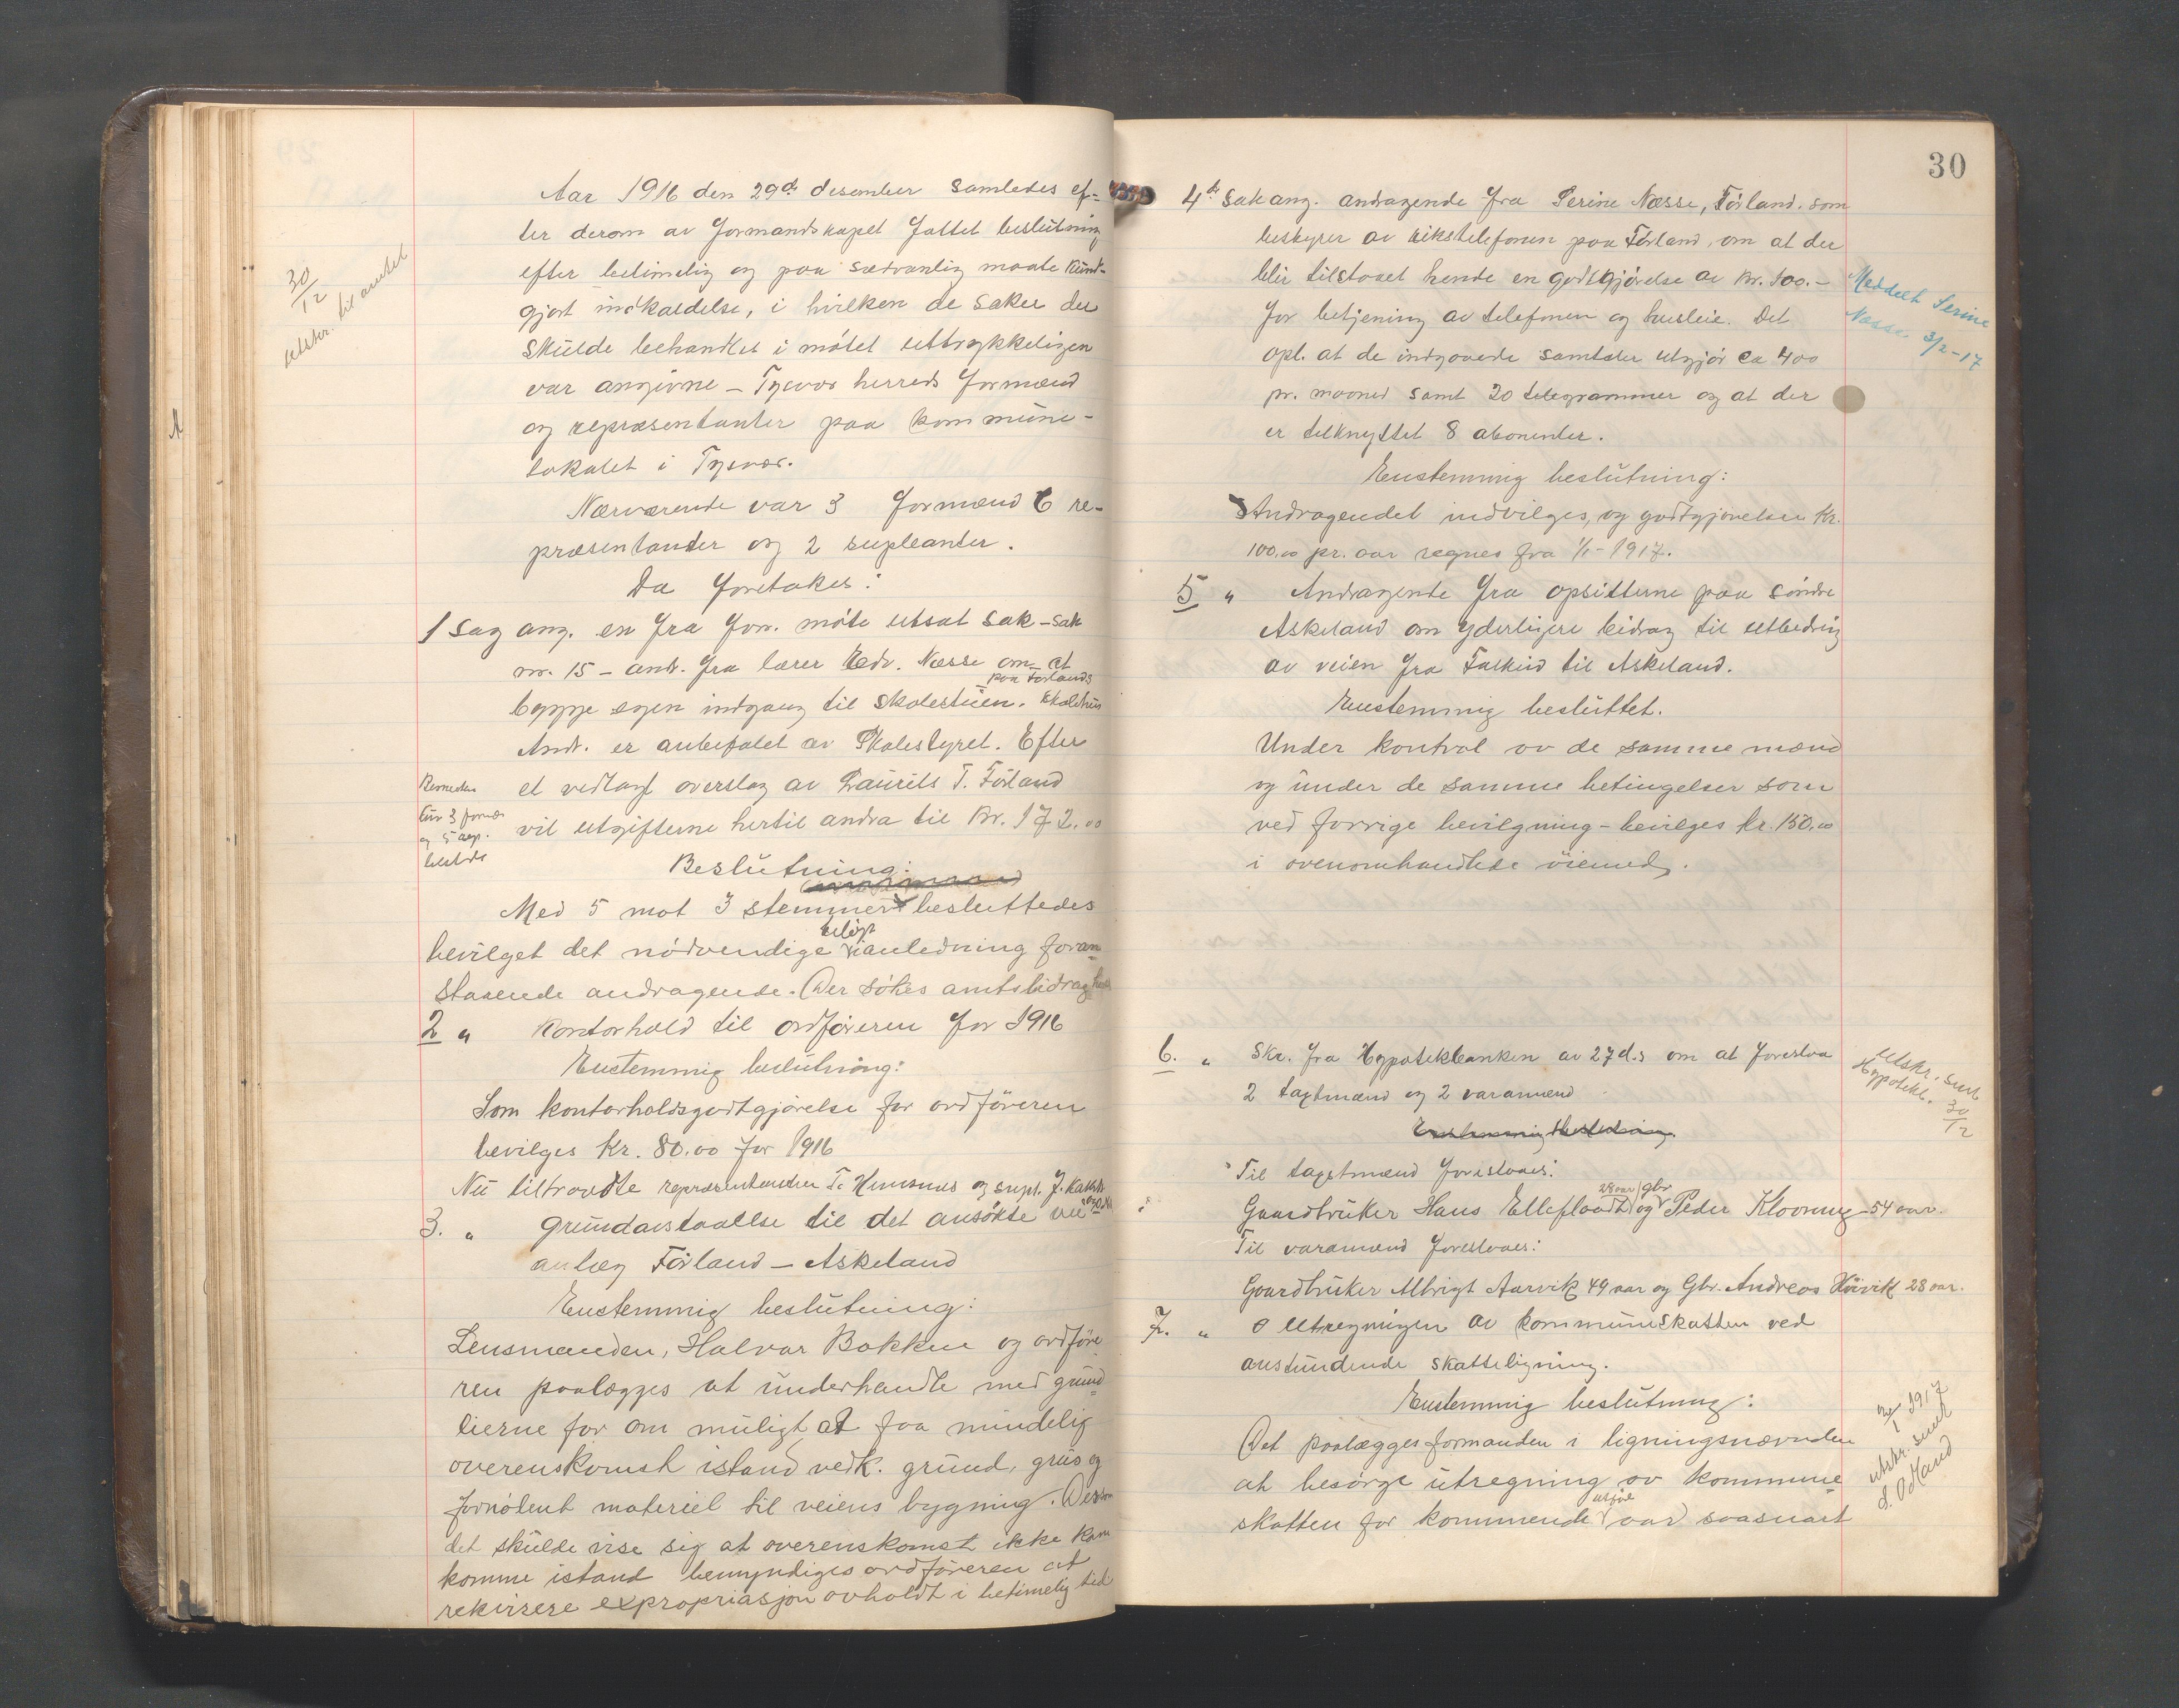 Aar 1916 den 29de desember samledes ef-
ter derom av formandskapet fattet beslutning
efter betimelig og paa sædvanlig maate kund-
gjort indkaldelse, i hvilken de saker der
skulde behandles i møtet uttrykkeligen
var angivne – Tysvær herreds formænd
og repræsentanter paa kommune-
lokalet i Tysvær.
30/12 utskr. til amtet
Nærværende var 3 formænd 6 re-
præsentanter og 2 supleanter.
Da foretakes:
1 Sag ang. en fra forr. møte utsat sak – sak
nr. 15 – andr. fra lærer Edv. Næsse om at
paa Førlands
bygge egen indgang til skolestuen. skolehus
Andr. er anbefalet av Skolestyret. Efter
et vedlagt overslag av Laurits T. Førland
vil utgifterne hertil andra til Kr. 172.00
3 formæ
og 5 rep.
Beslutning:
Med 5 mot 3 stemmer besluttedes
beløp
bevilget det nødvendige i anledning foran-
staaende andragende. Der søkes amtsbidrag
2 " Kontorhold til ordføreren for 1916
Enstemmig beslutning:
Som kontorholdsgodtgjørelse for ordføreren
bevilges kr. 80.00 for 1916
Nu tiltraadte repræsentanten T. og supl. J.
3. " Grundavstaaelse til det ansøkte vei
anlæg Førland – Askeland
Enstemmig beslutning:
Lensmanden, Halvar Bakken og ordføre
ren paalægges at underhandle med grund-
eierne for om muligt at faa mindelig
overenskomst istand vedk. grund, grus og
fornødent materiel til veiens bygning. Dersom
det skulde vise sig at overenskomst ikke kan
komme istand bemyndiges ordføreren at
rekvirere expropriasjon avholdt i betimelig tid
30
4de Sak ang. andragende fra Serine Næsse, Førland, som
bestyrer av rikstelefonen paa Førland, om at der
blir tilstaaet hende en godtgjørelse av kr. 100.–
for betjening av telefonen og husleie. Det
opl. at de indgaaede samtaler utgjør ca 400
pr. maaned samt 20 telegrammer og at der
er tilknyttet 8 abonenter.
Meddelt Serine
Næsse 3/2-17
Enstemmig beslutning:
Andragendet indvilges, og godtgjørelsen kr.
100.00 pr. aar regnes fra 1/1-1917.
5 " Andragende fra opsitterne paa søndre
Askeland om yderligere bidrag til utbedring
av veien fra Falkeid til Askeland.
Enstemmig besluttet.
Under kontrol av de samme mænd
og under de samme betingelser som
ved forrige bevilgning – bevilges kr. 150.00
i ovenomhandlede øiemed.
6. " Skr. fra Hypotekbanken av 27 d.s om at foreslaa
2 taxtmænd og 2 varamænd
Utskr. sendt
Hypotekb.
30/12
Enstemmig beslutning.
Til taxtmænd foreslaaes:
28 aar gbr
Gaardbruker Hans Elleflaadt og Peder Kloovning 54 aar.
Til varamænd foreslaaes:
Gaardbruker Albrigt Aarvik 49 aar og Gbr. Andreas Høivik 28 aar.
7. " Utregningen av kommuneskatten ved
anstundende skatteligning.
Enstemmig beslutning:
Det paalægges formanden i ligningsnævnden
at besørge utregning av kommune-
skatten for kommende aar saasnart
1917
utskr. sendt